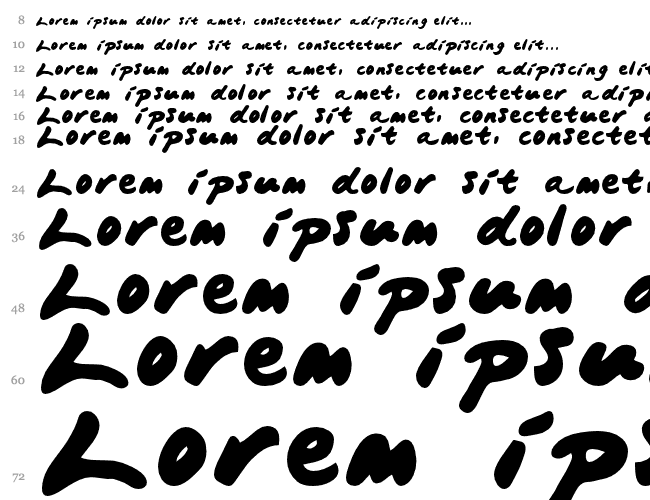 8 Lorem ipsum dolor sit amet, consectetuer adipiscing elit...
10 Lorem ipsum dolor sit amet, consectetuer adipiscing elit...
12 Lorem ipsum dolor sit amet, consectetuer adipiscing elit
14 Lorem ipsum dolor sit amet, consectetuer adip
16 Lorem ipsum dolor sit amet, consectetuer a
18 Lorem ipsum dolor sit amet, consectet
24 Lorem ipsum dolor sit amet,
36 Lorem ipsum dolor
48 Lorem ipsum d
60 Lorem ipsu
72 Lorem ips